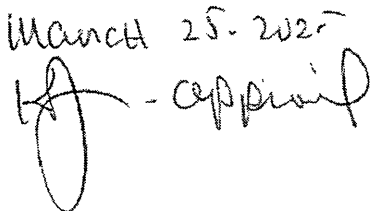 March 25. 2025
- approval